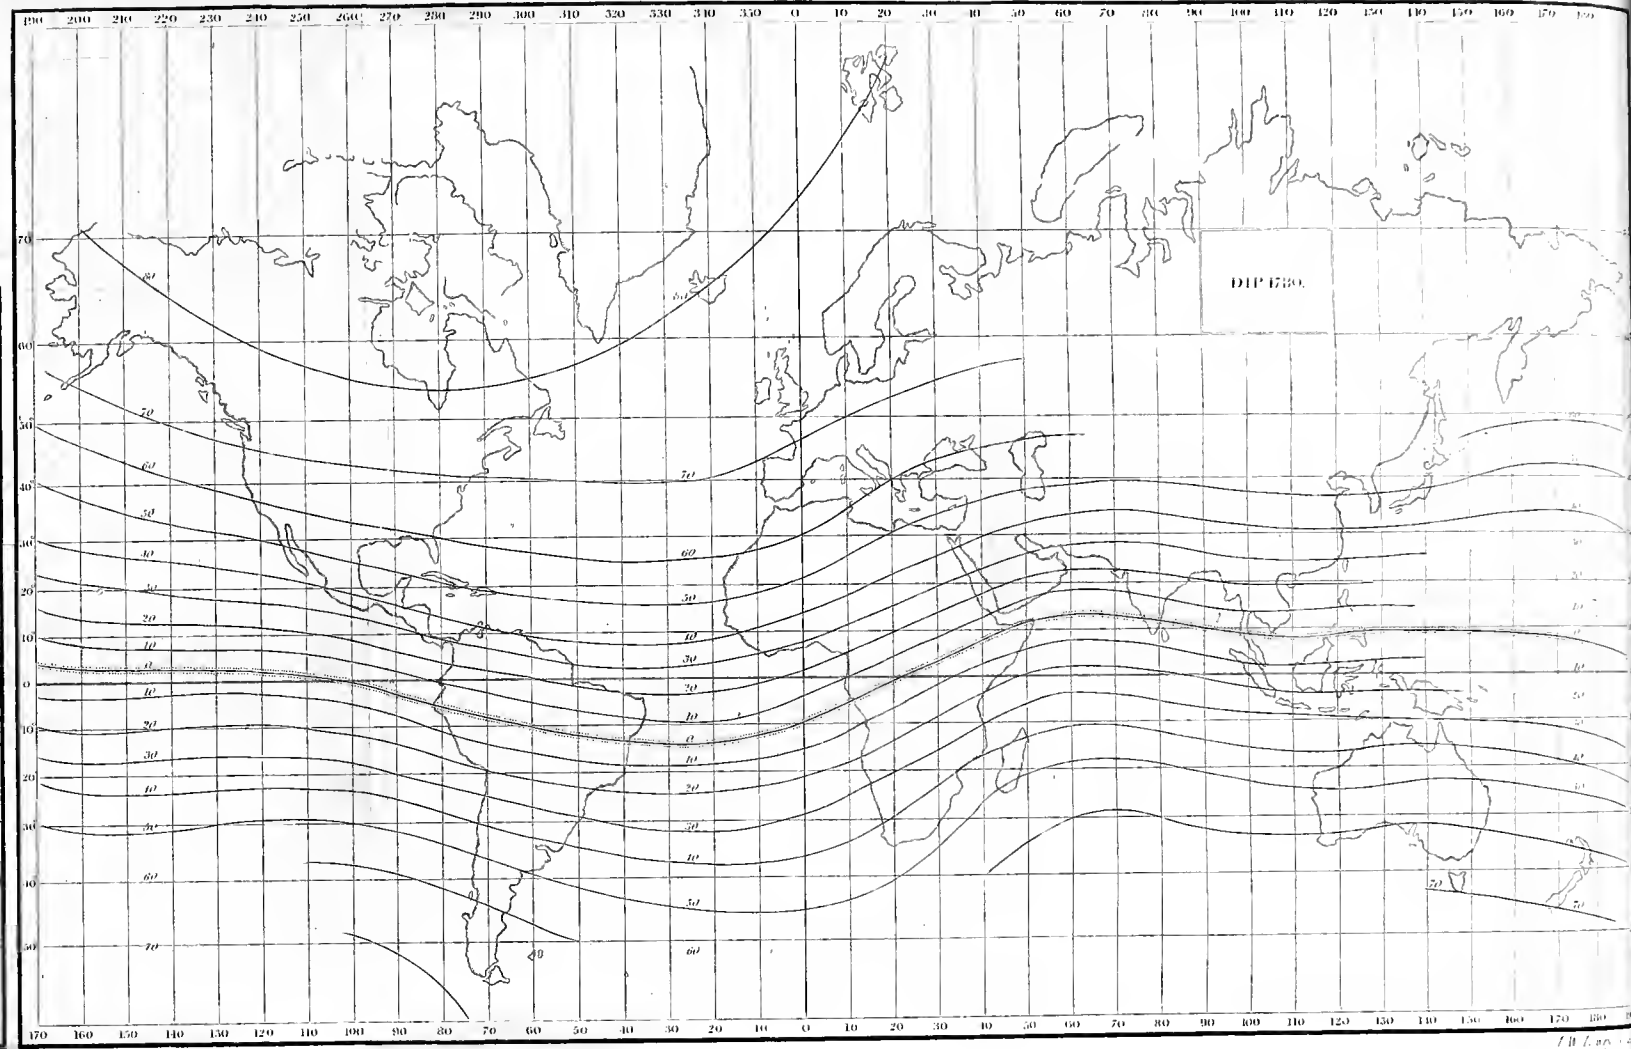 190 200 210 220 230 240 250 260 270 280 290 300 310 320 330 340 350 0 10 20 30 40 50 60 70 80 90 100 110 120 130 140 150 160 170 180
70
60
50
40
30
20
10
0
10
20
30
40
50
80
70
60
50
40
30
20
10
0
10
20
30
40
50
60
70
80
70
60
50
40
30
20
10
0
10
20
30
40
50
60
DIP 1780.
70
70
170 160 150 140 130 120 110 100 90 80 70 60 50 40 30 20 10 0 10 20 30 40 50 60 70 80 90 100 110 120 130 140 150 160 170 180